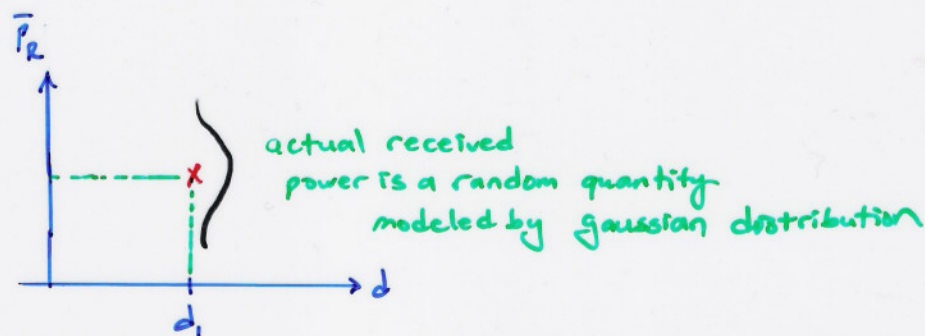 P̄_R
actual received
power is a random quantity
modeled by gaussian distribution
d
d₁